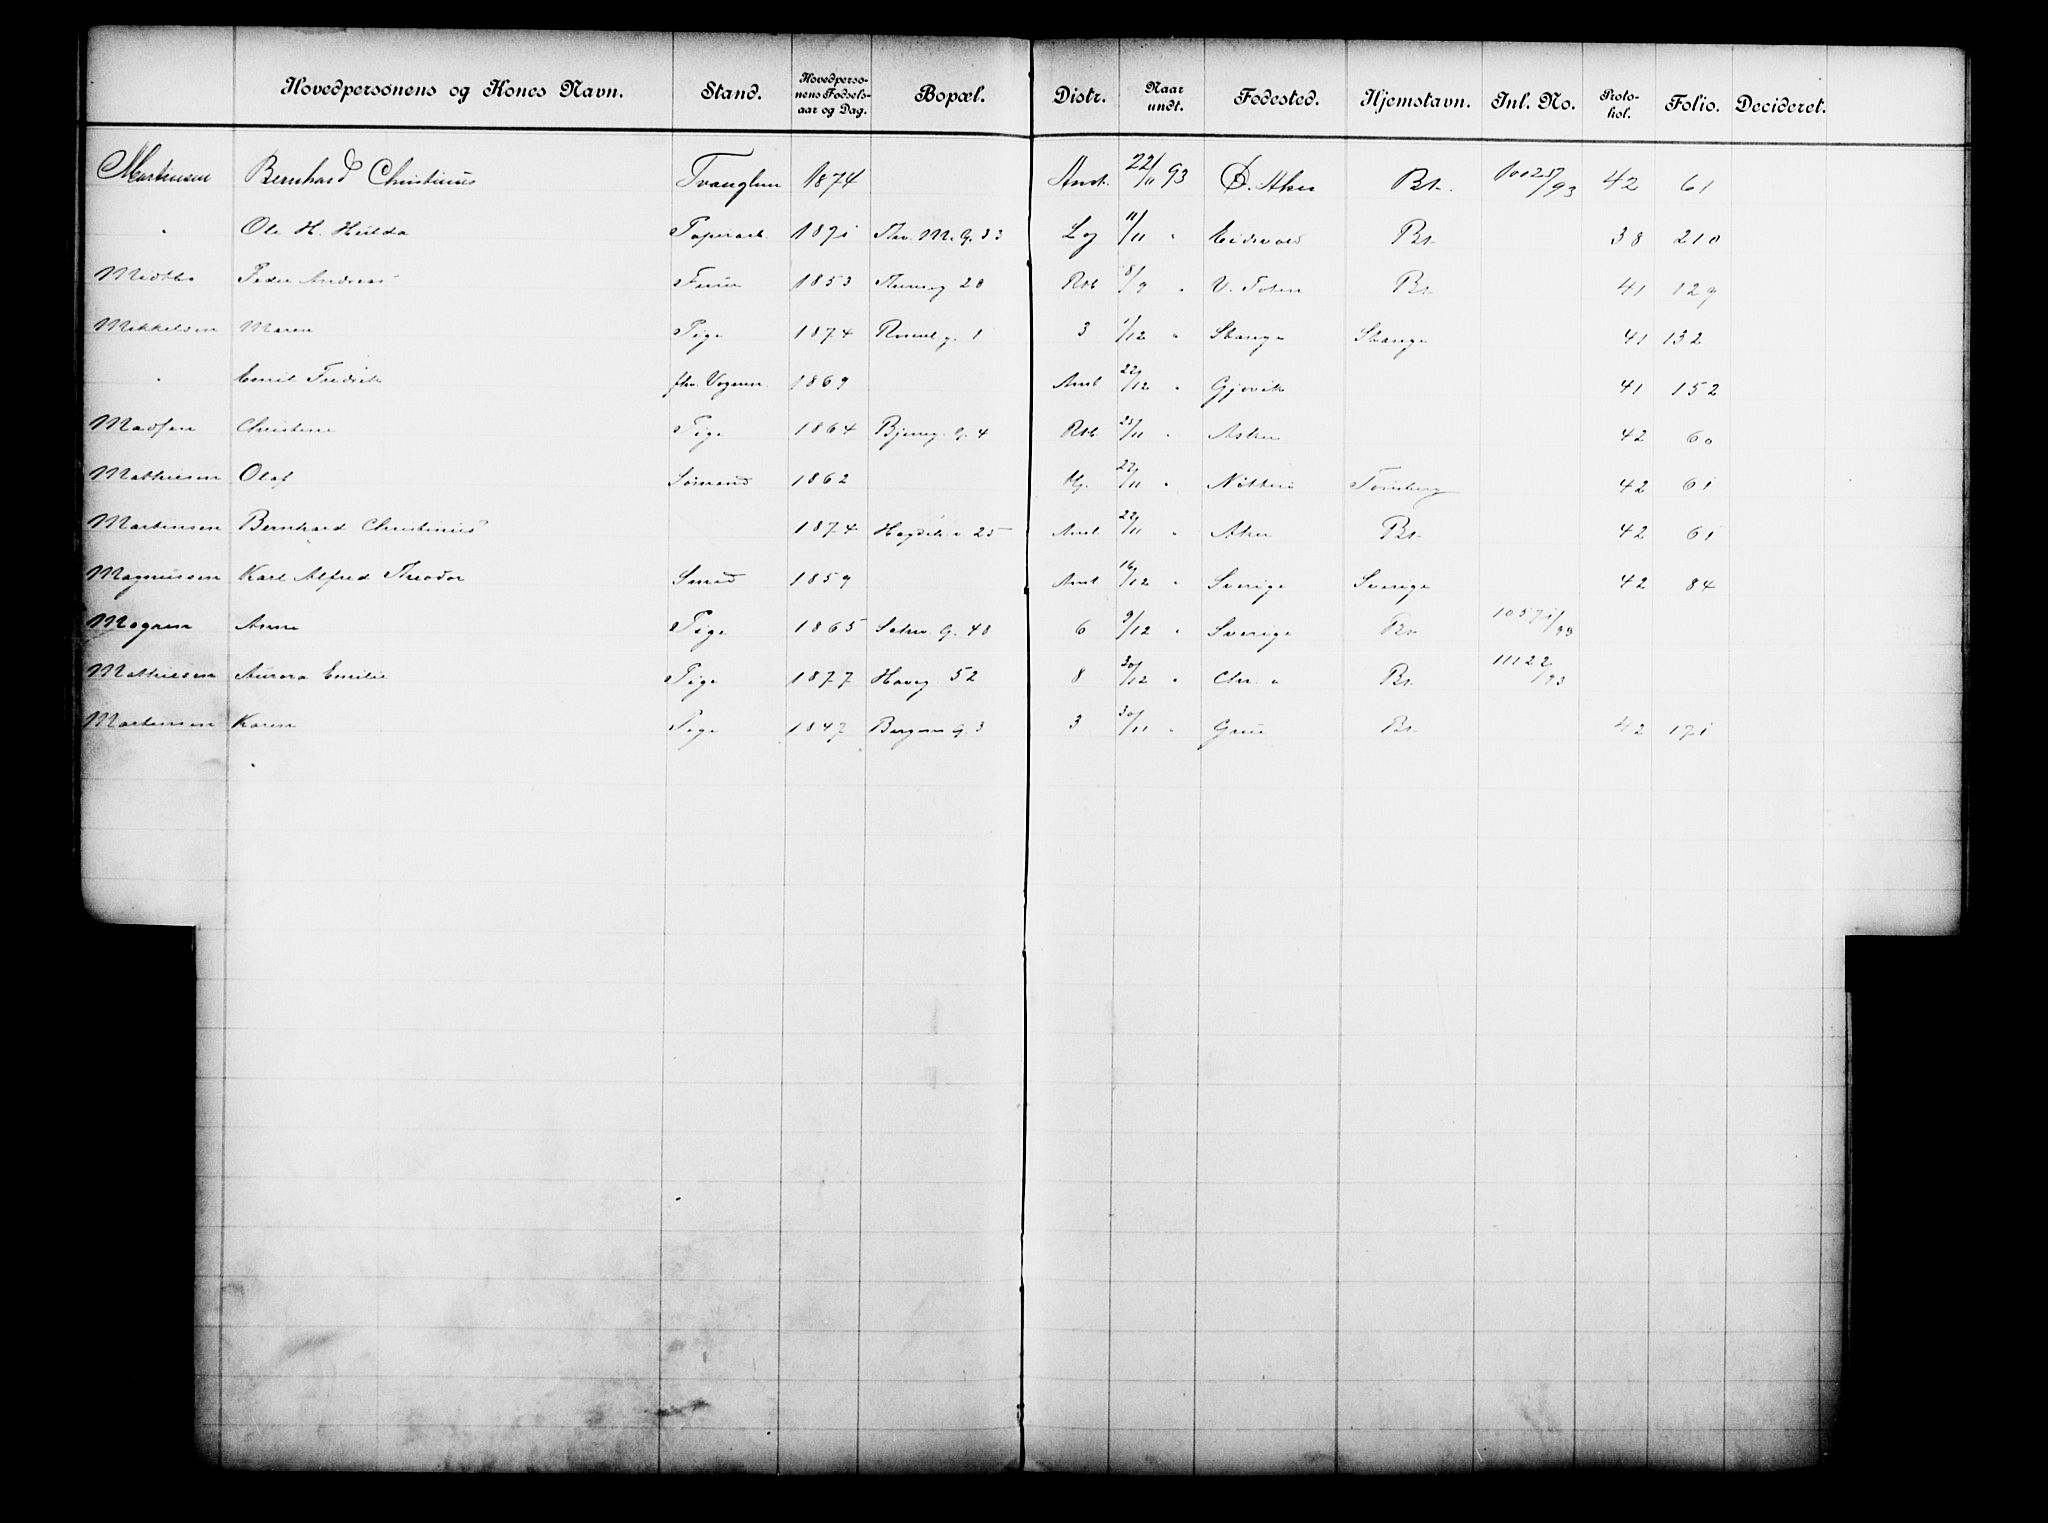 Hovedpersonens og Kones Navn. Stand. Hovedpersonens Fødselsaar og Dag. Bopæl. Distr. Naar undt. Fødested. Hjemstavn. Inl. No. Protokol. Folio. Decideret.
Martinsen Bernhard Christinius 1874 Anst. 22/11 93 Ø. Aker Bt. 93 42 61
" Ole H. Hulda 1871 Thv. M. G. 33 Lg 11/11 " Eidsvold Bt. 38 210
Midtbø Peder Andreas 1853 28 Rtb 8/9 " V. Toten Bt. 41 129
Mikkelsen Maren Pige 1874 1 3 1/12 " Stange Stange 41 132
" Emil Fredrik fhv. Vognm. 1869 Anst 22/12 " Gjøvik 41 152
Madsen Christine Pige 1864 Bjerreg. G. 4 Rtb 25/11 " Asker 42 60
Mathiesen Olaf Sømand 1862 22/11 " Nøtterø Tønsberg 42 61
Martinsen Bernhard Christinius 1874 25 Anst 22/11 " Aker Bt. 42 61
Magnussen Karl Alfred Theodor Smed 1859 Anst 16/12 " Sverige Sverige 42 84
Mogren Anne Pige 1865 Schw. G. 48 6 9/12 " Sverige Bt. 10571/93
Mathiesen Aurora Emilie Pige 1877 Haveg. 52 8 30/12 " Chr. a Bt. 11122/93
Martinsen Karen Pige 1847 Bergens G. 3 3 30/11 " Grue Bt. 42 171